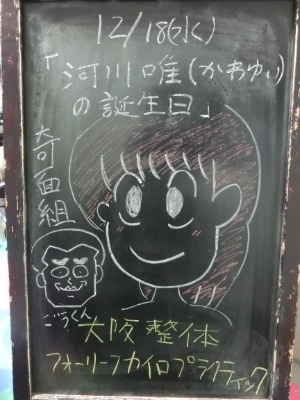 12/18(水)
「河川唯(かわゆい)
の誕生日」
奇面組
ごうくん
大阪整体
フォーリーフカイロプラクティック